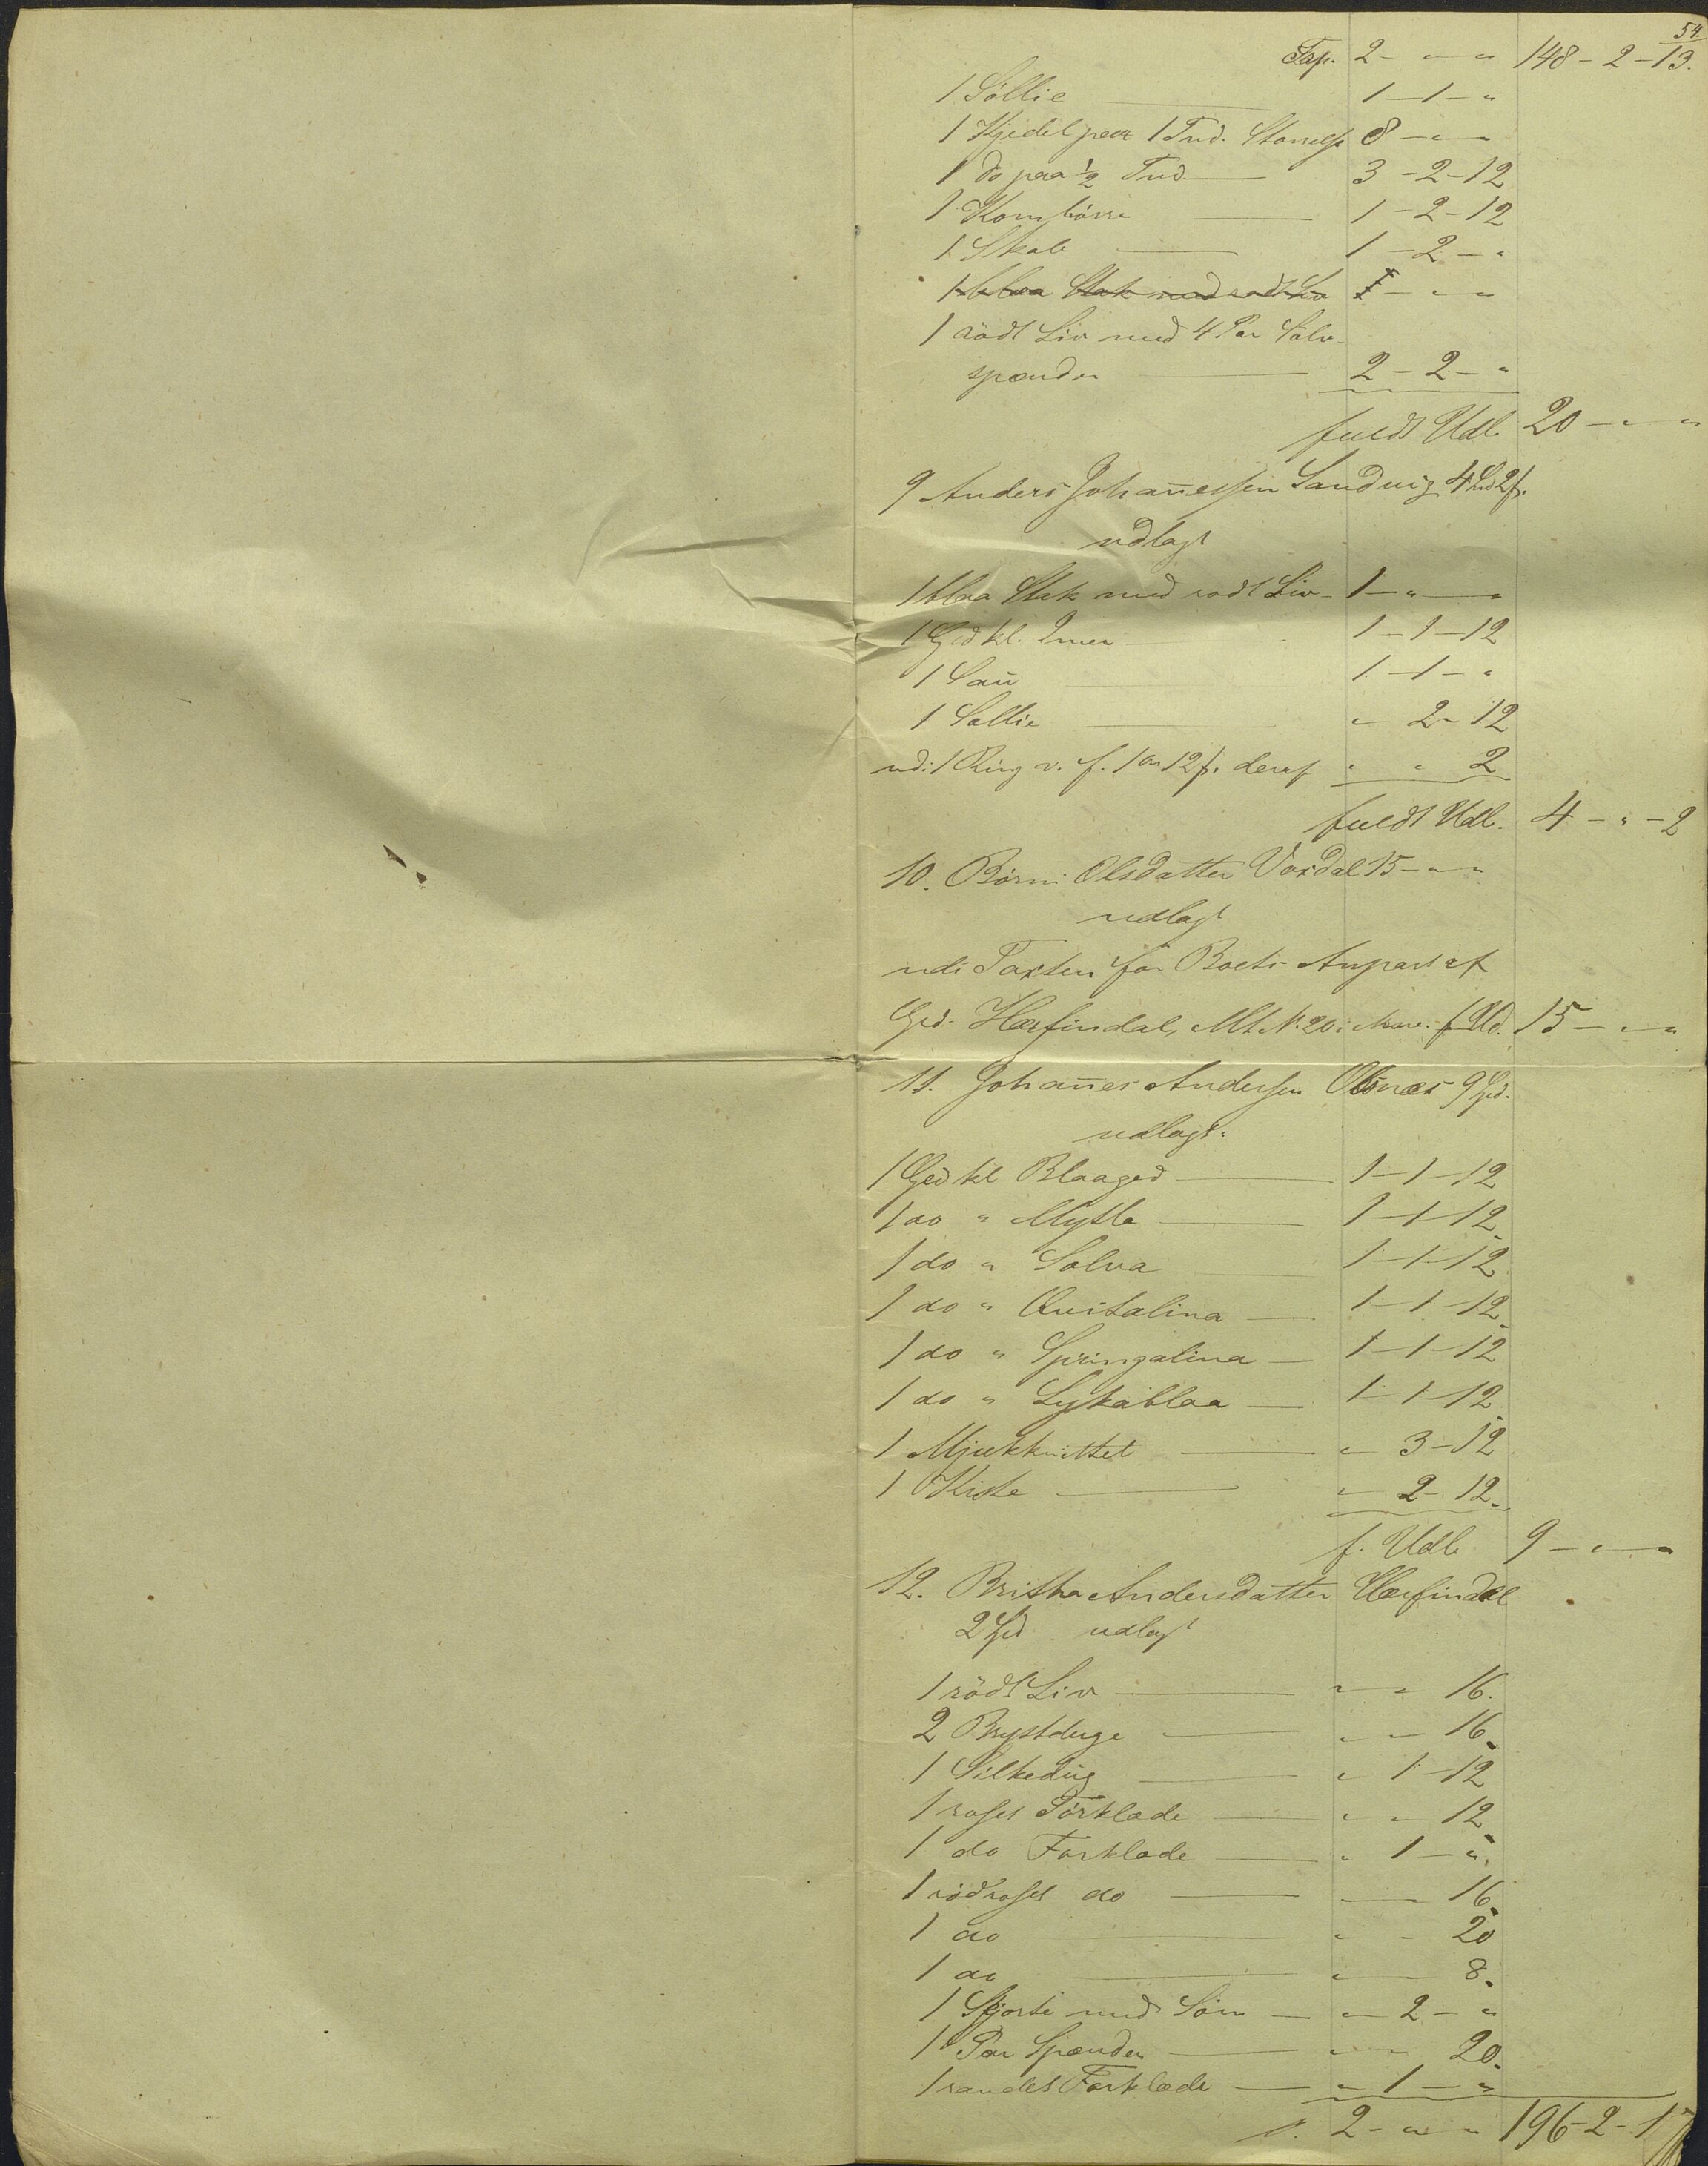 54.
Tsp. 2 - " - " 148 - 2 - 13.
1 Söllie 1 - 1 - "
1 Kjedel paa 1 Tnd. Størrelse 8 - " - "
1 do paa ½ Tnd 3 - 2 - 12
1 Kornbörre 1 - 2 - 12
1 Skab 1 - 2 - "
1 blaa Stak med rødt Liv 1 - " - "
1 rödt Liv med 4 Par Sölv-
spænder 2 - 2 - "
fuldt Udl. 20 - " - "
9 Anders Johan̄essen Sandvig 4 Spd 2 s.
udlagt
1 blaa Stak med rødt Liv - 1 - " - "
1 Ged kl. 1 - 1 - 12
1 Sau 1 - 1 - "
1 Söllie " 2 - 12
udi 1 Ring v. f. 1 Ort 12 s. deraf " " 2
fuldt Udl. 4 - " - 2
10. Börni Olsdatter Vaxdal 15 - " - "
udlagt
udi Taxten for Boets Anpart af
Grd. Hærfindal, Mt. N. 20 f Ud. 15 - " - "
11. Johan̄es Andersen Olsnæs 9 Spd.
udlagt.
1 Ged kl Blaaged 1 - 1 - 12
1 do " Mylla 1 - 1 - 12
1 do " Solva 1 - 1 - 12
1 do " Qvitalina 1 - 1 - 12
1 do " Springalina 1 - 1 - 12
1 do " Lykablaa 1 - 1 - 12
1 Mjukkittel " 3 - 12
1 Kiste " 2 - 12
f. Udl. 9 - " - "
12. Britha Andersdatter Hærfindal
2 Spd udlagt
1 rödt Liv " - " 16.
2 Brystduge " - 16
1 Silkedug " 1 - 12
1 roset Törklæde " " 12
1 do Forklæde " 1 - "
1 rödroset do " 16
1 do " - 20
1 do " - 8.
1 Skjorte med Söm " 2 - "
1 Par Spænder " - 20.
1 randet Forklæde " 1 - "
s. 2 - " - " 196 - 2 - 17